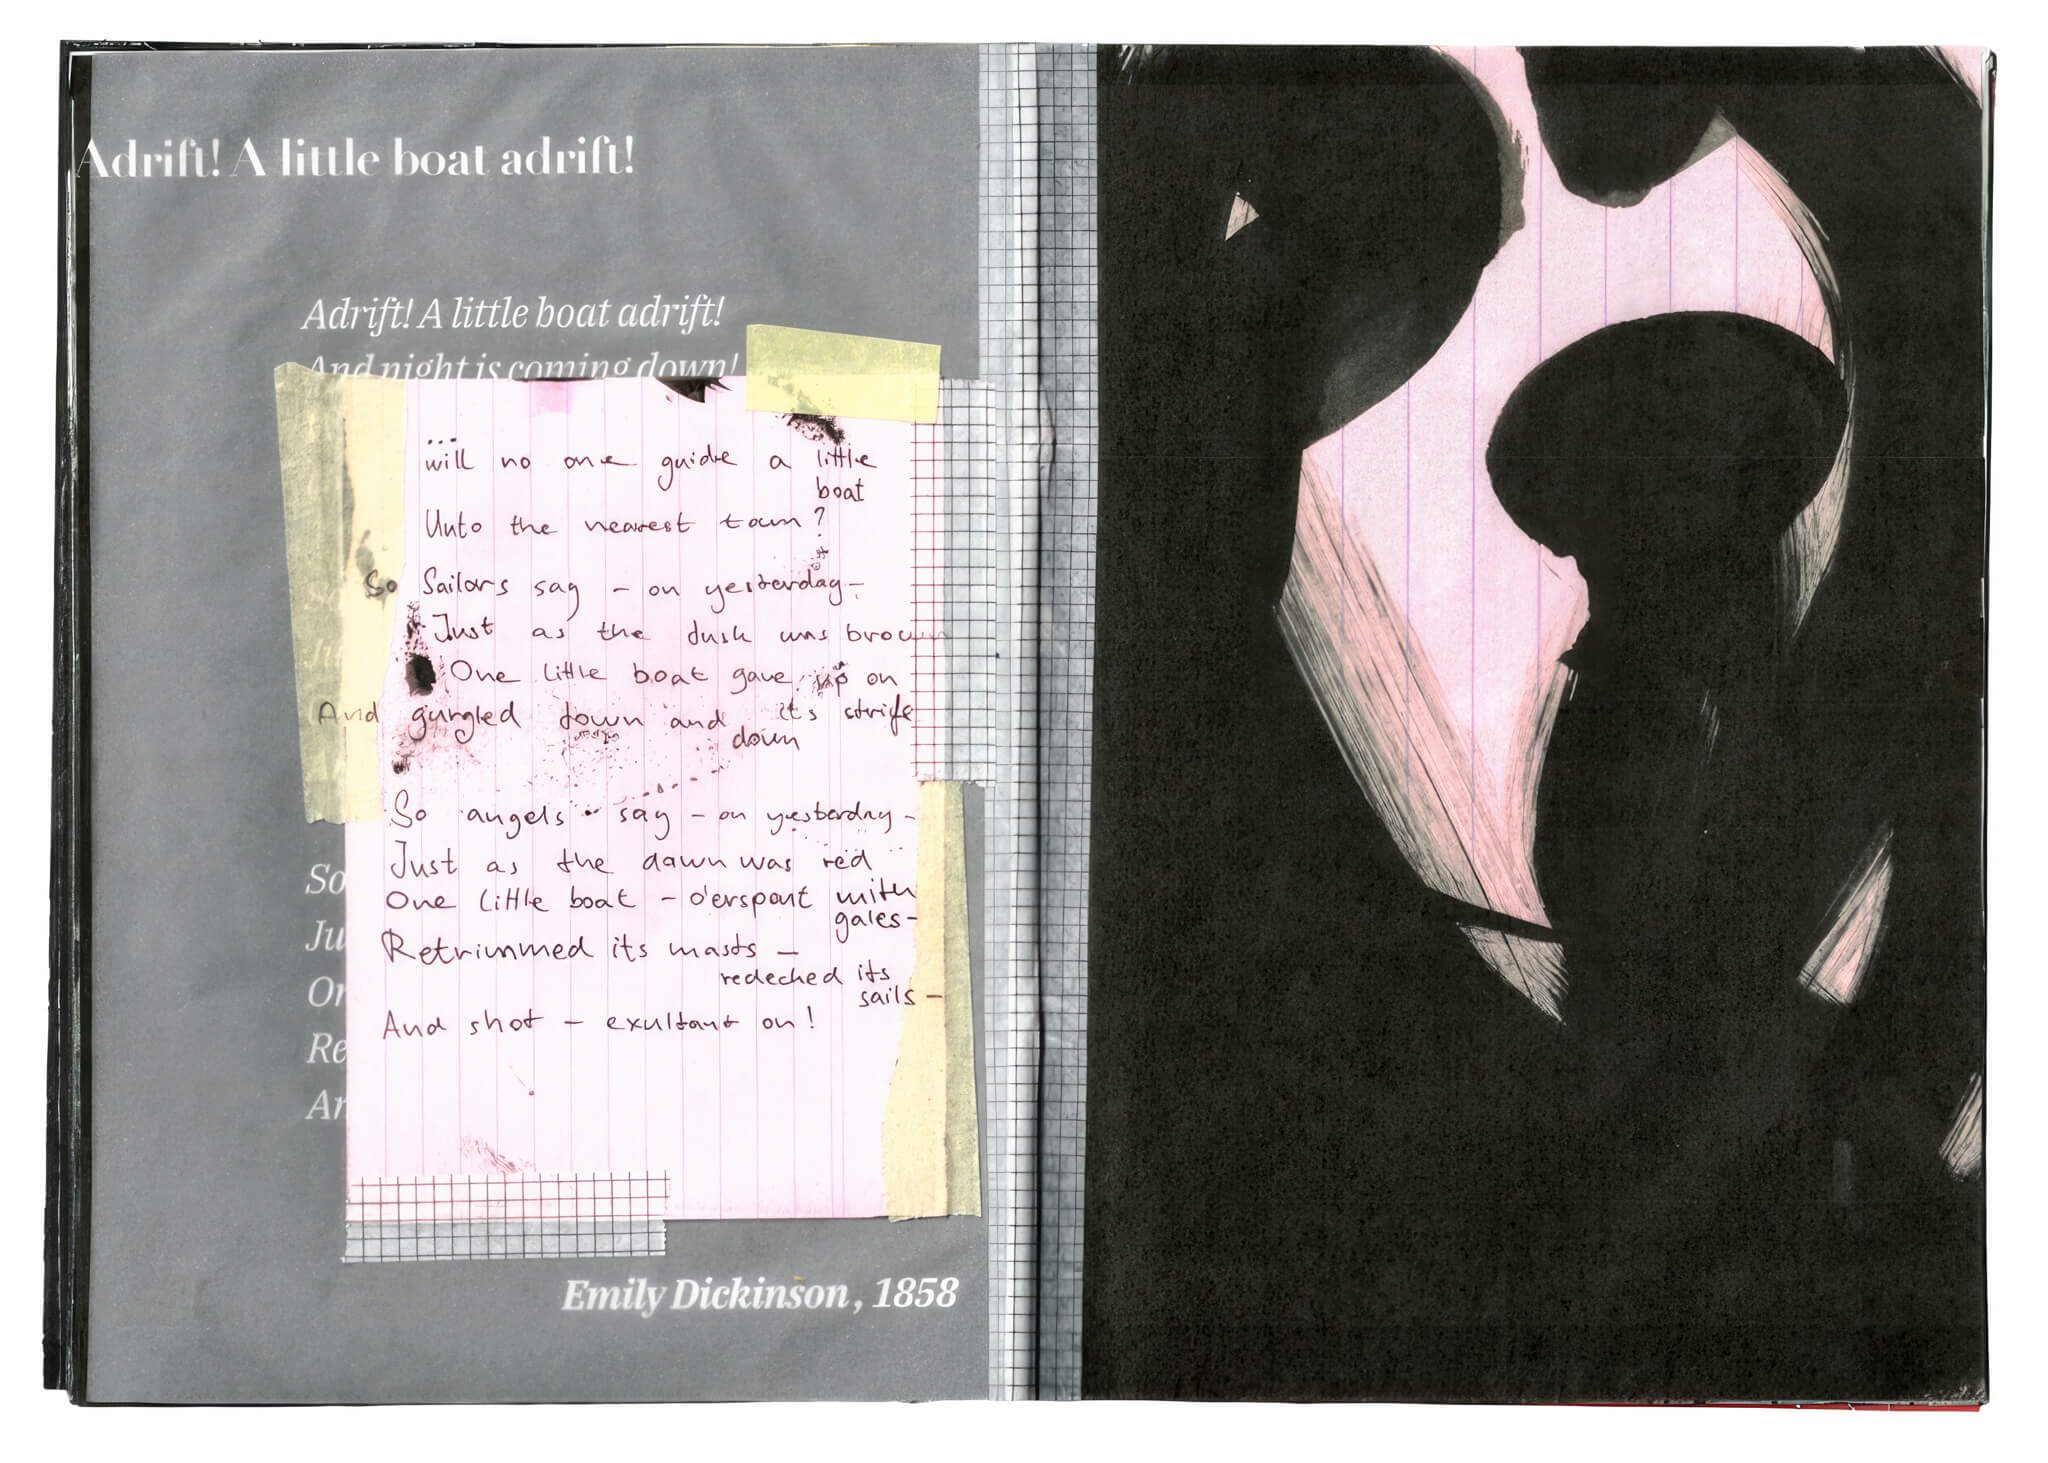 Adrift! A little boat adrift!
Adrift! A little boat adrift!
And night is coming down!
...
will no one guide a little
boat
Unto the nearest town?
So Sailors say – on yesterday –
Just as the dusk was brown
One little boat gave up on
its strife
And gurgled down and
down
So angels say – on yesterday –
Just as the dawn was red
One little boat – o'erspent with
gales –
Retrimmed its masts –
redecked its
sails –
And shot – exultant on!
So
Ju
On
Re
An
Emily Dickinson, 1858